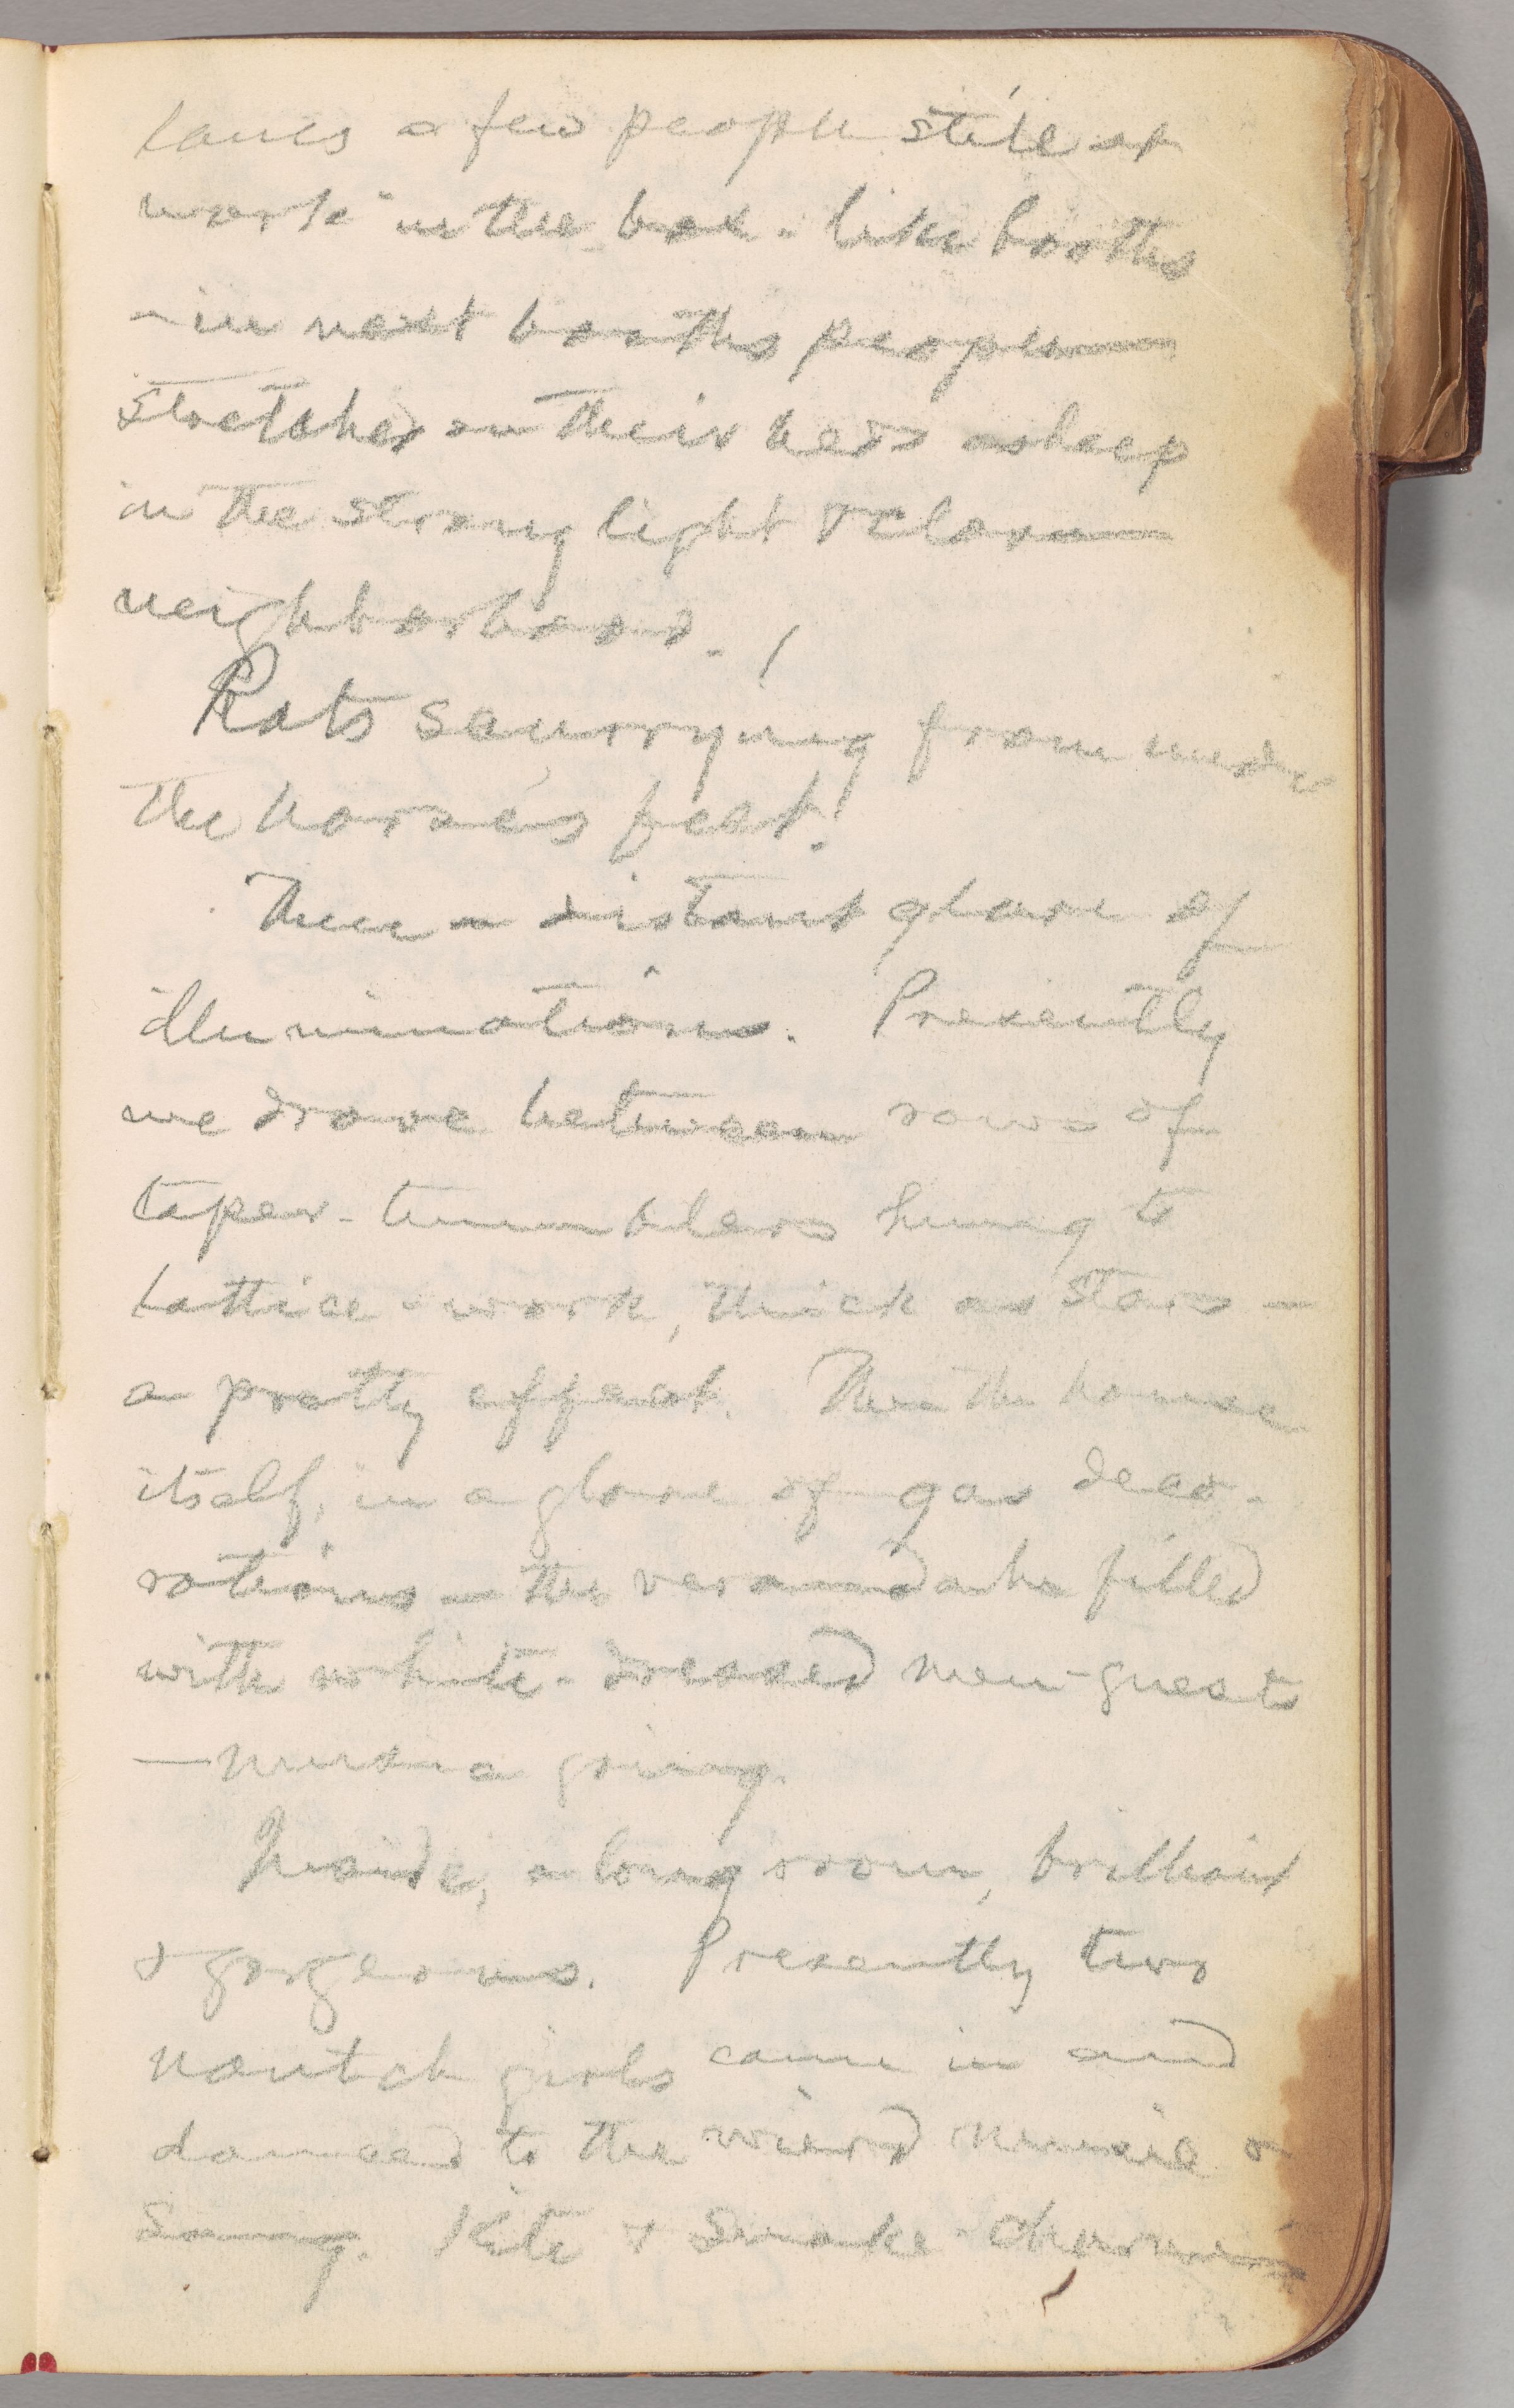 lanes a few people still at
work in the box-like booths
– in next booths people
stretched on their beds asleep
in the strong light & close
neighborhood. /
Rats scurrying from under
the horse's feet!
Then a distant glare of
illuminations. Presently
we drove between rows of
taper-tumblers hung to
lattice-work, thick as stars –
a pretty effect. Then the house
itself, in a glare of gas deco-
rations – the verandahs filled
with white-dressed men-guests
— music going.
Inside, a long room, brilliant
& gorgeous. Presently two
nautch girls came in and
danced to the wierd music &
song. Kite & Snake-